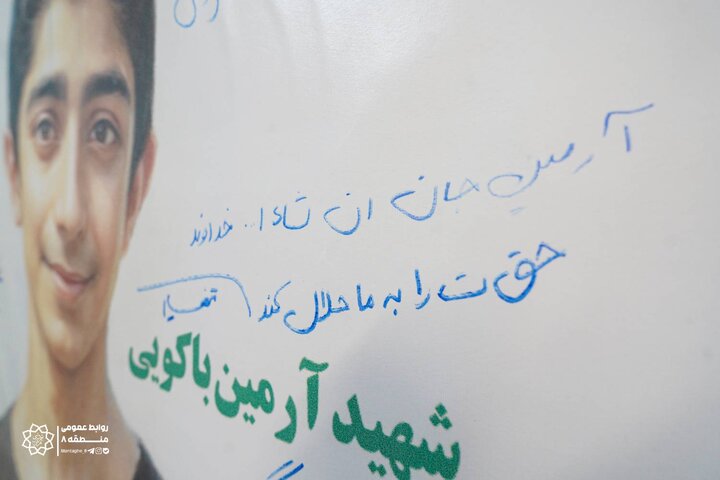 آرمین جان ان شاء ا... خداوند
حق ت را به ما حلال کند
شهید آرمین باکویی
روابط عمومی
منطقه ۸